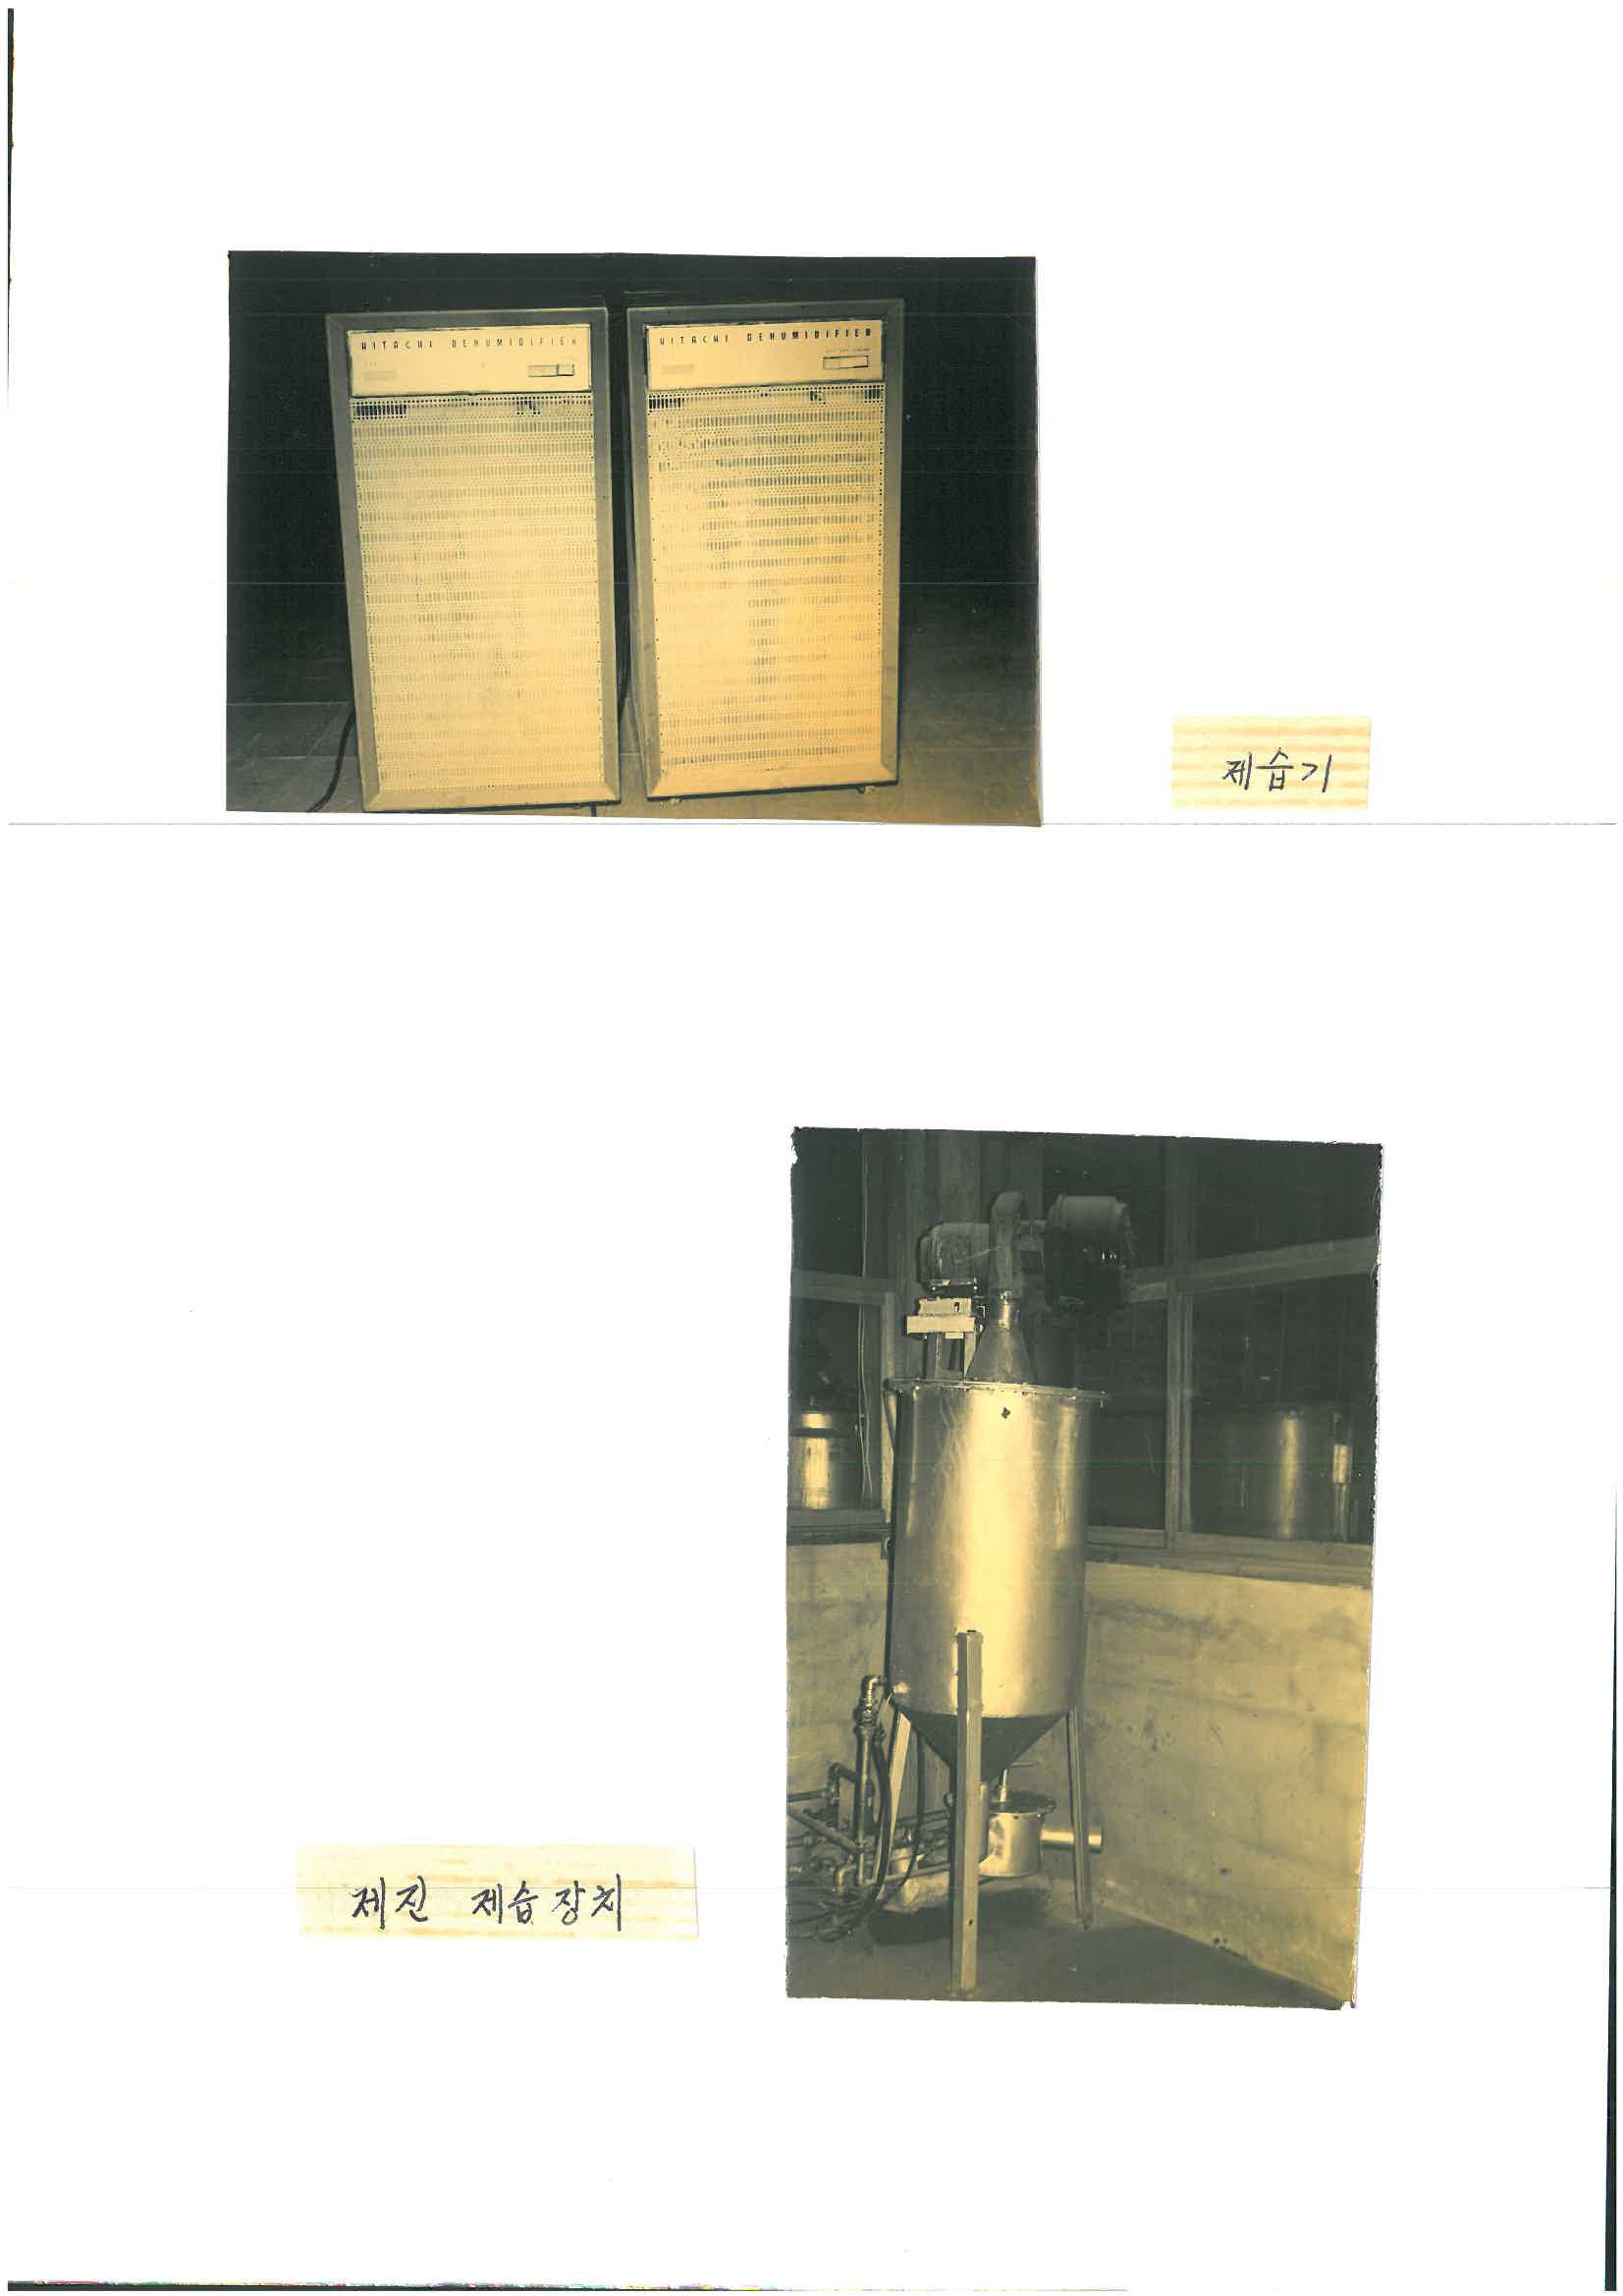 HITACHI DEHUMIDIFIER
HITACHI DEHUMIDIFIER
제습기
제진 제습장치